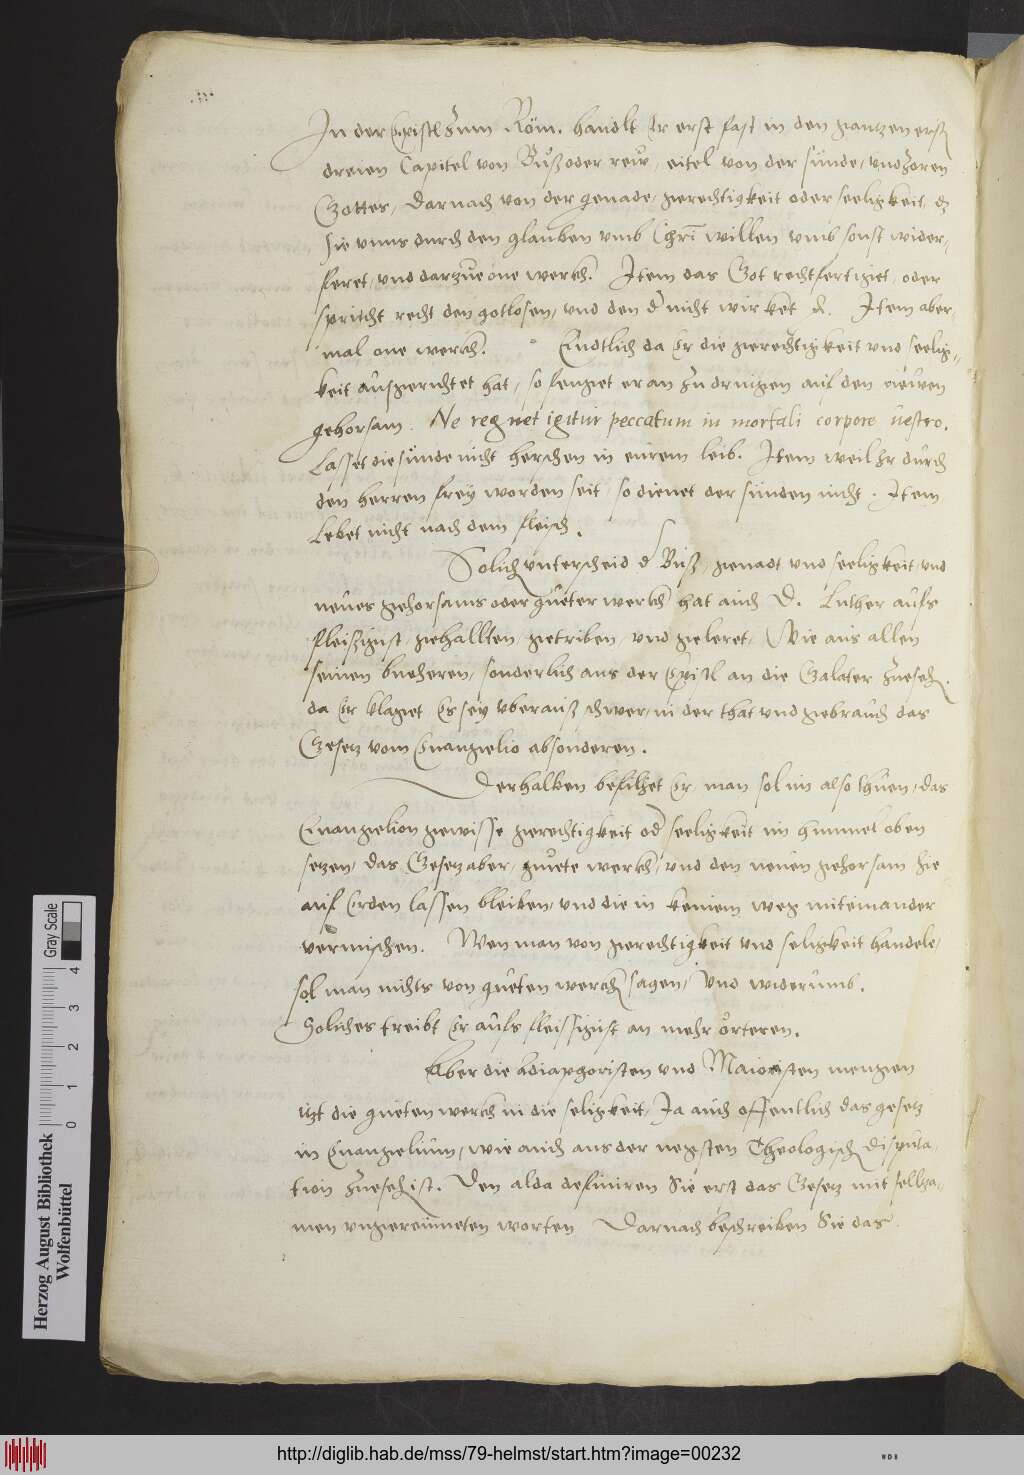 In der Epistl zum Röm. handlt Er erst fast in den gantzen ersten
dreien Capitel von Buß oder rew, eitel von der sünde, und zoren
Gottes, Darnach von der genade, gerechtigkeit oder seeligkeit, dz
sie unns durch den glauben umb Chri willen umb sonst wider,
feret, und darzue one werckh. Item das Got rechtfertiget, oder
spricht recht den gotlosen, und den d nicht wircket &. Item aber,
mal one werckh. Endtlich da Er die gerechtigkeit und seelig,
keit aufgerichtet hat, so fenget er an zu dringen auf den neuen
gehorsam. Ne regnet igitur peccatum in mortali corpore vestro.
Lasset die sünde nicht herschen in eurem leib. Item weil Ir durch
den herren frey worden seit, so dienet der sünden nicht. Item
Lebet nicht nach dem fleisch.
Solich unterscheid d Buß, genadt und seeligkeit, und
neues gehorsams oder gueter werckh hat auch D. Luther aufs
fleißigist, gehallten, getriben, und geleret, Wie aus allen
seinen bucheren, sonderlich aus der Epistl an die Galater zuesehen.
da Er klaget Es sey uberauß schwer, in der that und gebrauch das
Gesetz vom Evangelio absönderen.
Derhalben befilhet Er man sol im also thuen, das
Evangelion gewisse gerechtigkeit od seeligkeit im himmel oben
setzen, das Gesetz aber, guete werckh, und den neuen gehorsam hie
auf Erden lassen bleiben, und die in keinem weg miteinander
vermischen. Wen man von gerechtigkeit und seligkeit handele,
sol man nichts von gueten werckhen sagen, Und widerumb.
Soliches treibt Er aufs fleissigist an mehr örteren.
Aber die Adiaphoristen und Maioristen mengen
itzt die gueten werckh in die seligkeit, Ja auch offentlich das gesetz
in Evangelium, wie auch aus der negsten Theologischen disputa
tion zuesehen ist. Den alda definiren Sie erst das Gesetz mit sellza,
men ungereumeten worten Darnach beschreiben Sie das
Herzog August Bibliothek
Wolfenbüttel
0 1 2 3 4
Gray Scale
http://diglib.hab.de/mss/79-helmst/start.htm?image=00232
WDB